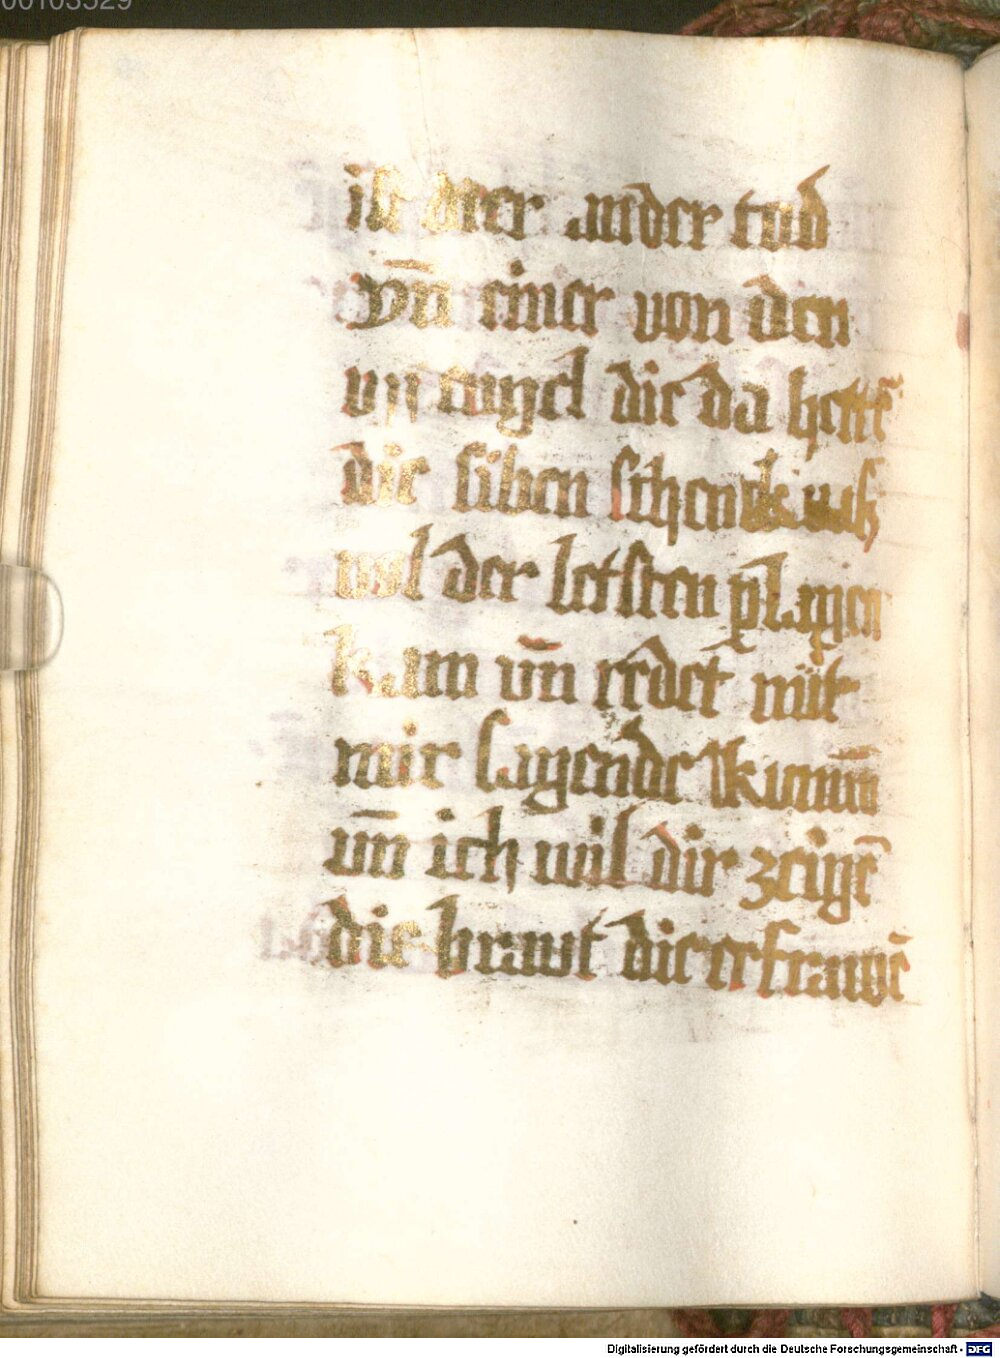 00103529
ist der ander tod
vn̄ einer von den
vij engel die da hettē
die siben schenkuas
vol der letsten plagen
kam vn̄ redet mit
mir sagende kumm
vn̄ ich wil dir zeigē
die braut die er frauwē
Digitalisierung gefördert durch die Deutsche Forschungsgemeinschaft - DFG